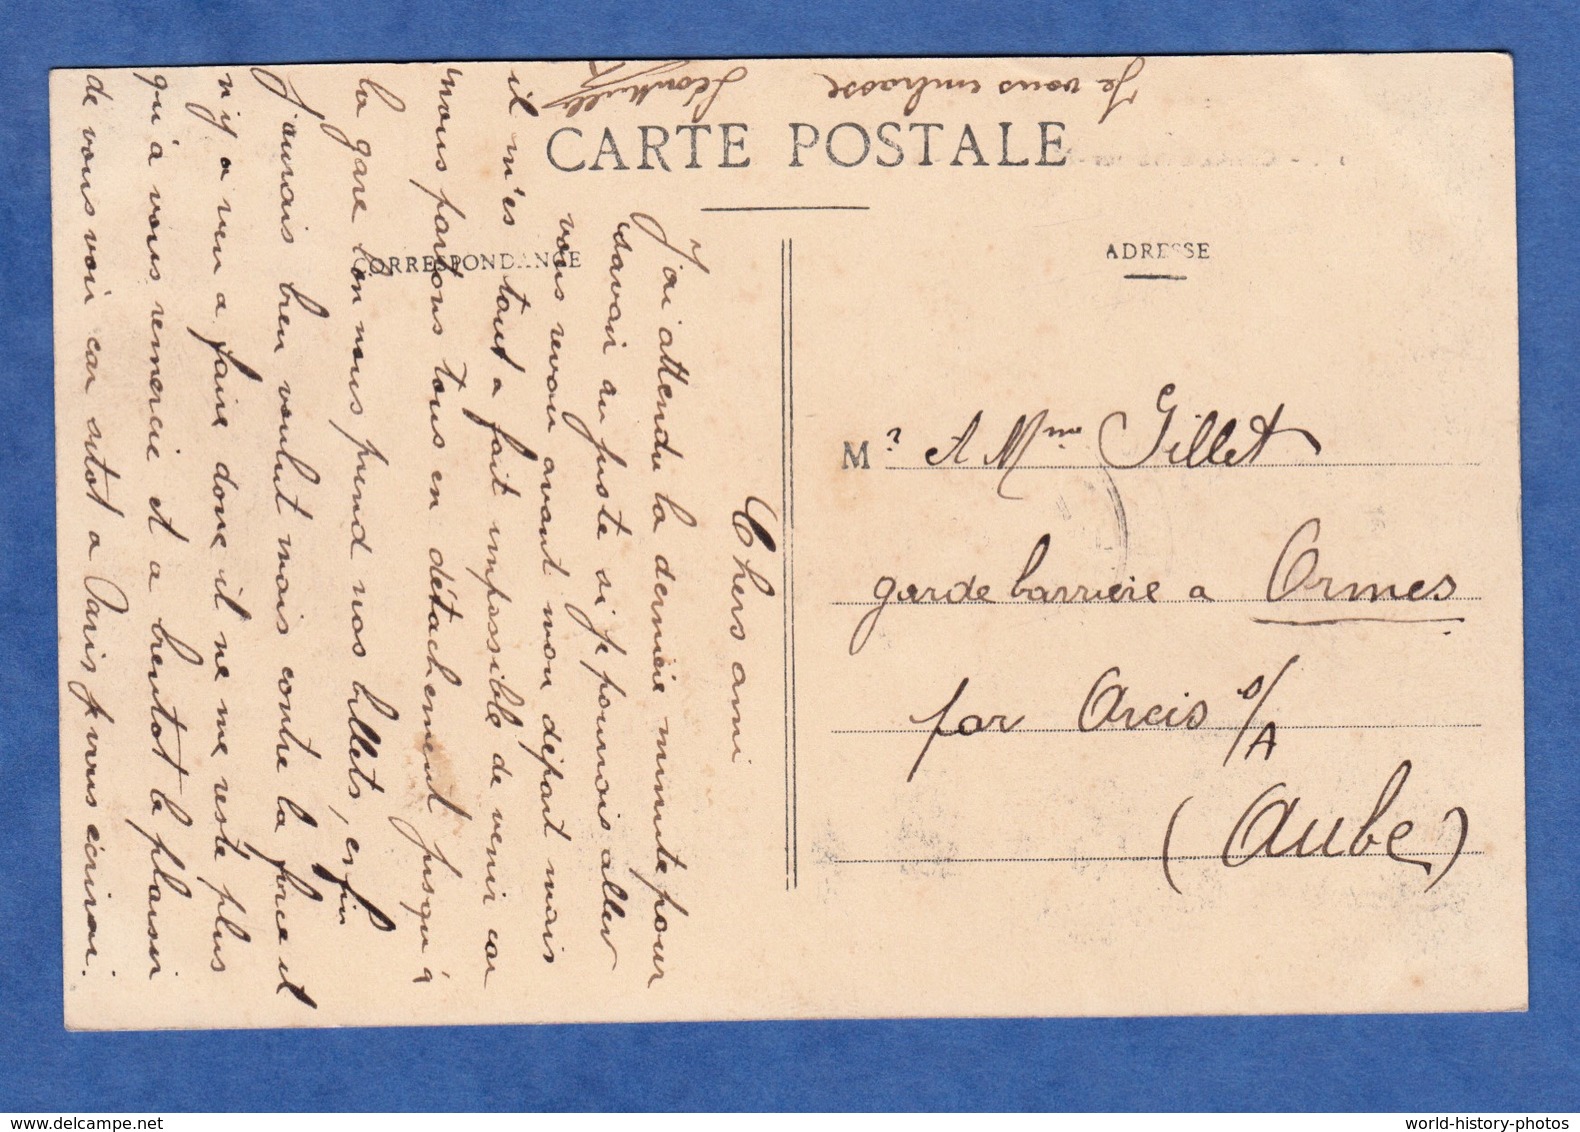 CARTE POSTALE
CORRESPONDANCE
ADRESSE
Chers ami
J'ai attendu la derniére minute pour
savoir au juste si je pourrais aller
vous revoir avant mon départ mais
il m'es tout a fait impossible de venir car
nous partons tous en détachement jusqu'à
la gare l'on nous prend nos billets, enfin
j'aurais bien voulut mais contre la force il
n'y a rien a faire donc il ne me reste plus
qu'a vous remercié et a bientot le plaisir
de vous voir car sitot a Paris je vous écrirai.
Je vous embrasse
Mr et Mme Gillet
garde barriére a Ormes
par Arcis s/A
(Aube)
world-history-photos
www.delcampe.net